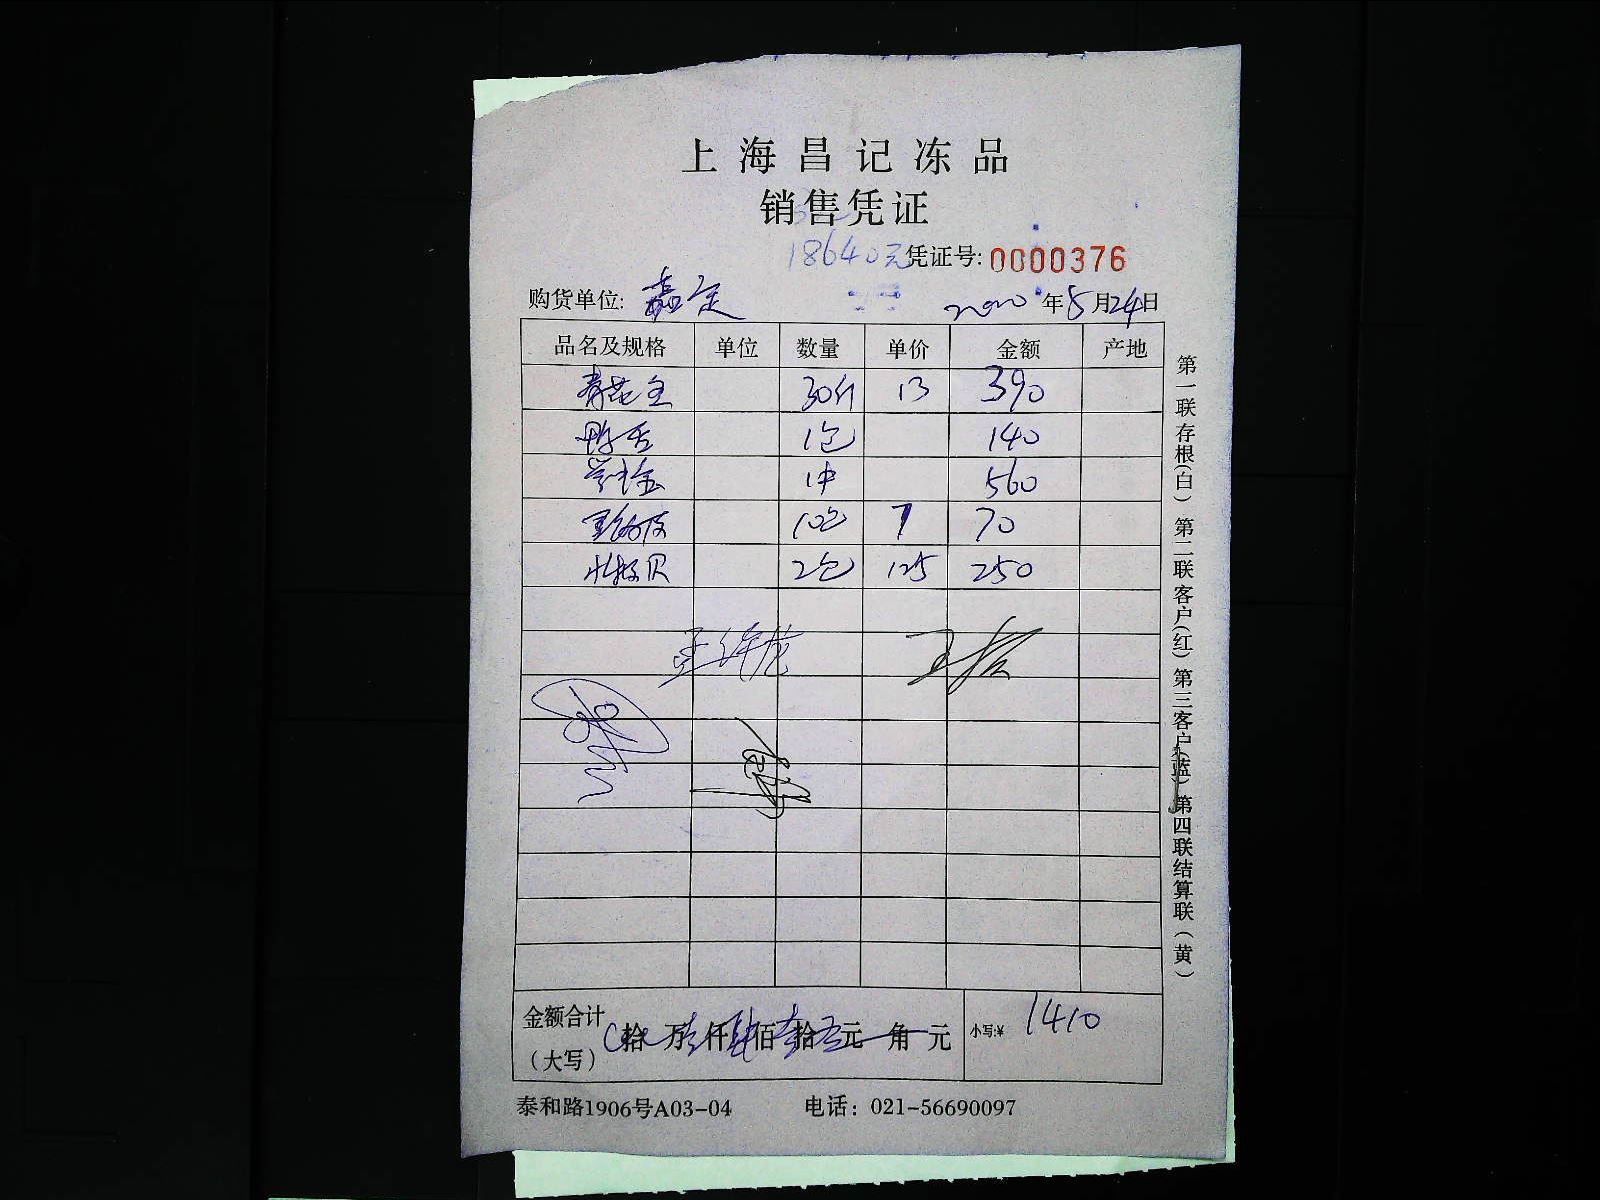 上海昌记冻品
销售凭证
18640元 凭证号: 0000376
购货单位: 嘉定 2020年5月24日
品名及规格 单位 数量 单价 金额 产地
30斤 13 390
鸭舌 1包 140
1件 560
10包 7 70
2包 125 250
金额合计 拾 万 仟 佰 拾 元 角 元 小写:¥ 1410
（大写）
泰和路1906号A03-04 电话：021-56690097
第一联存根(白) 第二联客户(红) 第三客户(蓝) 第四联结算联(黄)